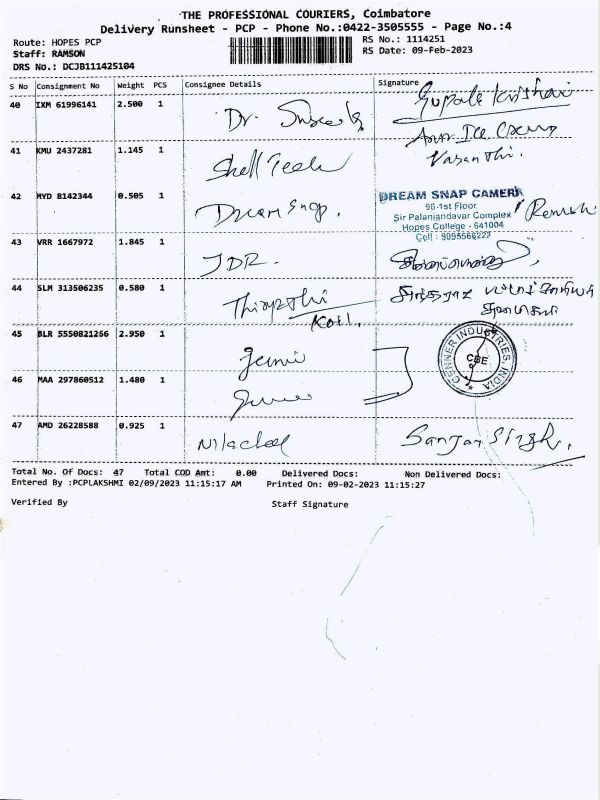 THE PROFESSIONAL COURIERS, Coimbatore
Delivery Runsheet - PCP - Phone No.:0422-3505555 - Page No.:4
Route: HOPES PCP
Staff: RAMSON
DRS No.: DCJB111425104
RS No.: 1114251
RS Date: 09-Feb-2023
S No Consignment No Weight PCS Consignee Details Signature
40 IXM 61996141 2.500 1 Dr.
Vasanthi.
41 KMU 2437281 1.145 1 Shell Tech
42 MYD 8142344 0.505 1 Dream Snap.
DREAM SNAP CAMERA
98-1st Floor
Sir Palaniandavar Complex
Hopes College - 641004
Cell : 9095566222
43 VRR 1667972 1.845 1 JDR.
44 SLM 313506235 0.580 1 Thirupathi
Koil.
45 BLR 5550821266 2.950 1
CENNER INDUSTRIES, INDIA
CBE
46 MAA 297860512 1.480 1
47 AMD 26228588 0.925 1 Nilachal Sanjay Singh.
Total No. Of Docs: 47 Total COD Amt: 0.00 Delivered Docs: Non Delivered Docs:
Entered By :PCPLAKSHMI 02/09/2023 11:15:17 AM Printed On: 09-02-2023 11:15:27
Verified By Staff Signature